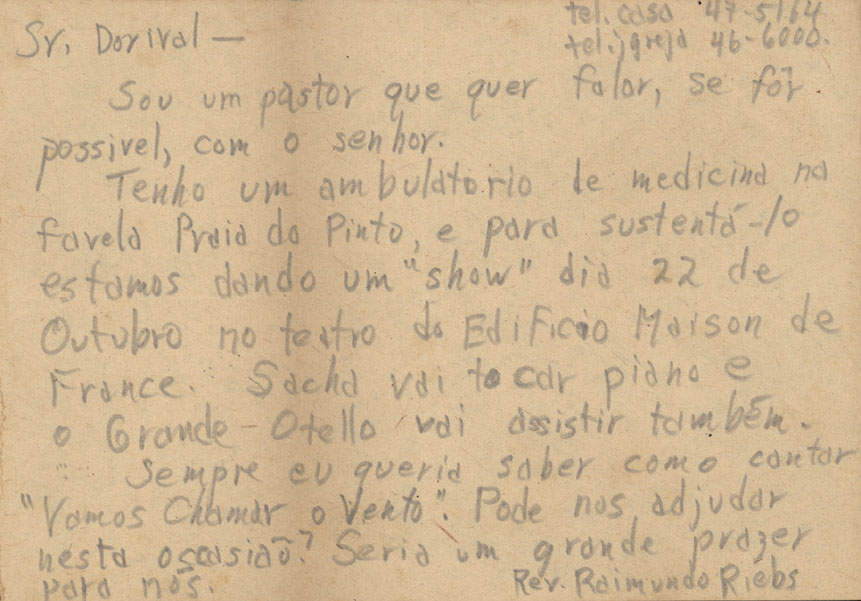 tel. casa 47-5164
tel. igreja 46-6000.
Sr. Dorival —
Sou um pastor que quer falar, se fôr
possivel, com o senhor.
Tenho um ambulatorio de medicina na
favela Praia do Pinto, e para sustentá-lo
estamos dando um "show" dia 22 de
Outubro no teatro do Edificio Maison de
France. Sacha vai tocar piano e
o Grande Otello vai assistir também.
Sempre eu queria saber como cantar
"Vamos Chamar o Vento". Pode nos adjudar
nesta oscasiaõ? Seria um grande prazer
para nós.
Rev. Raimundo Riebs